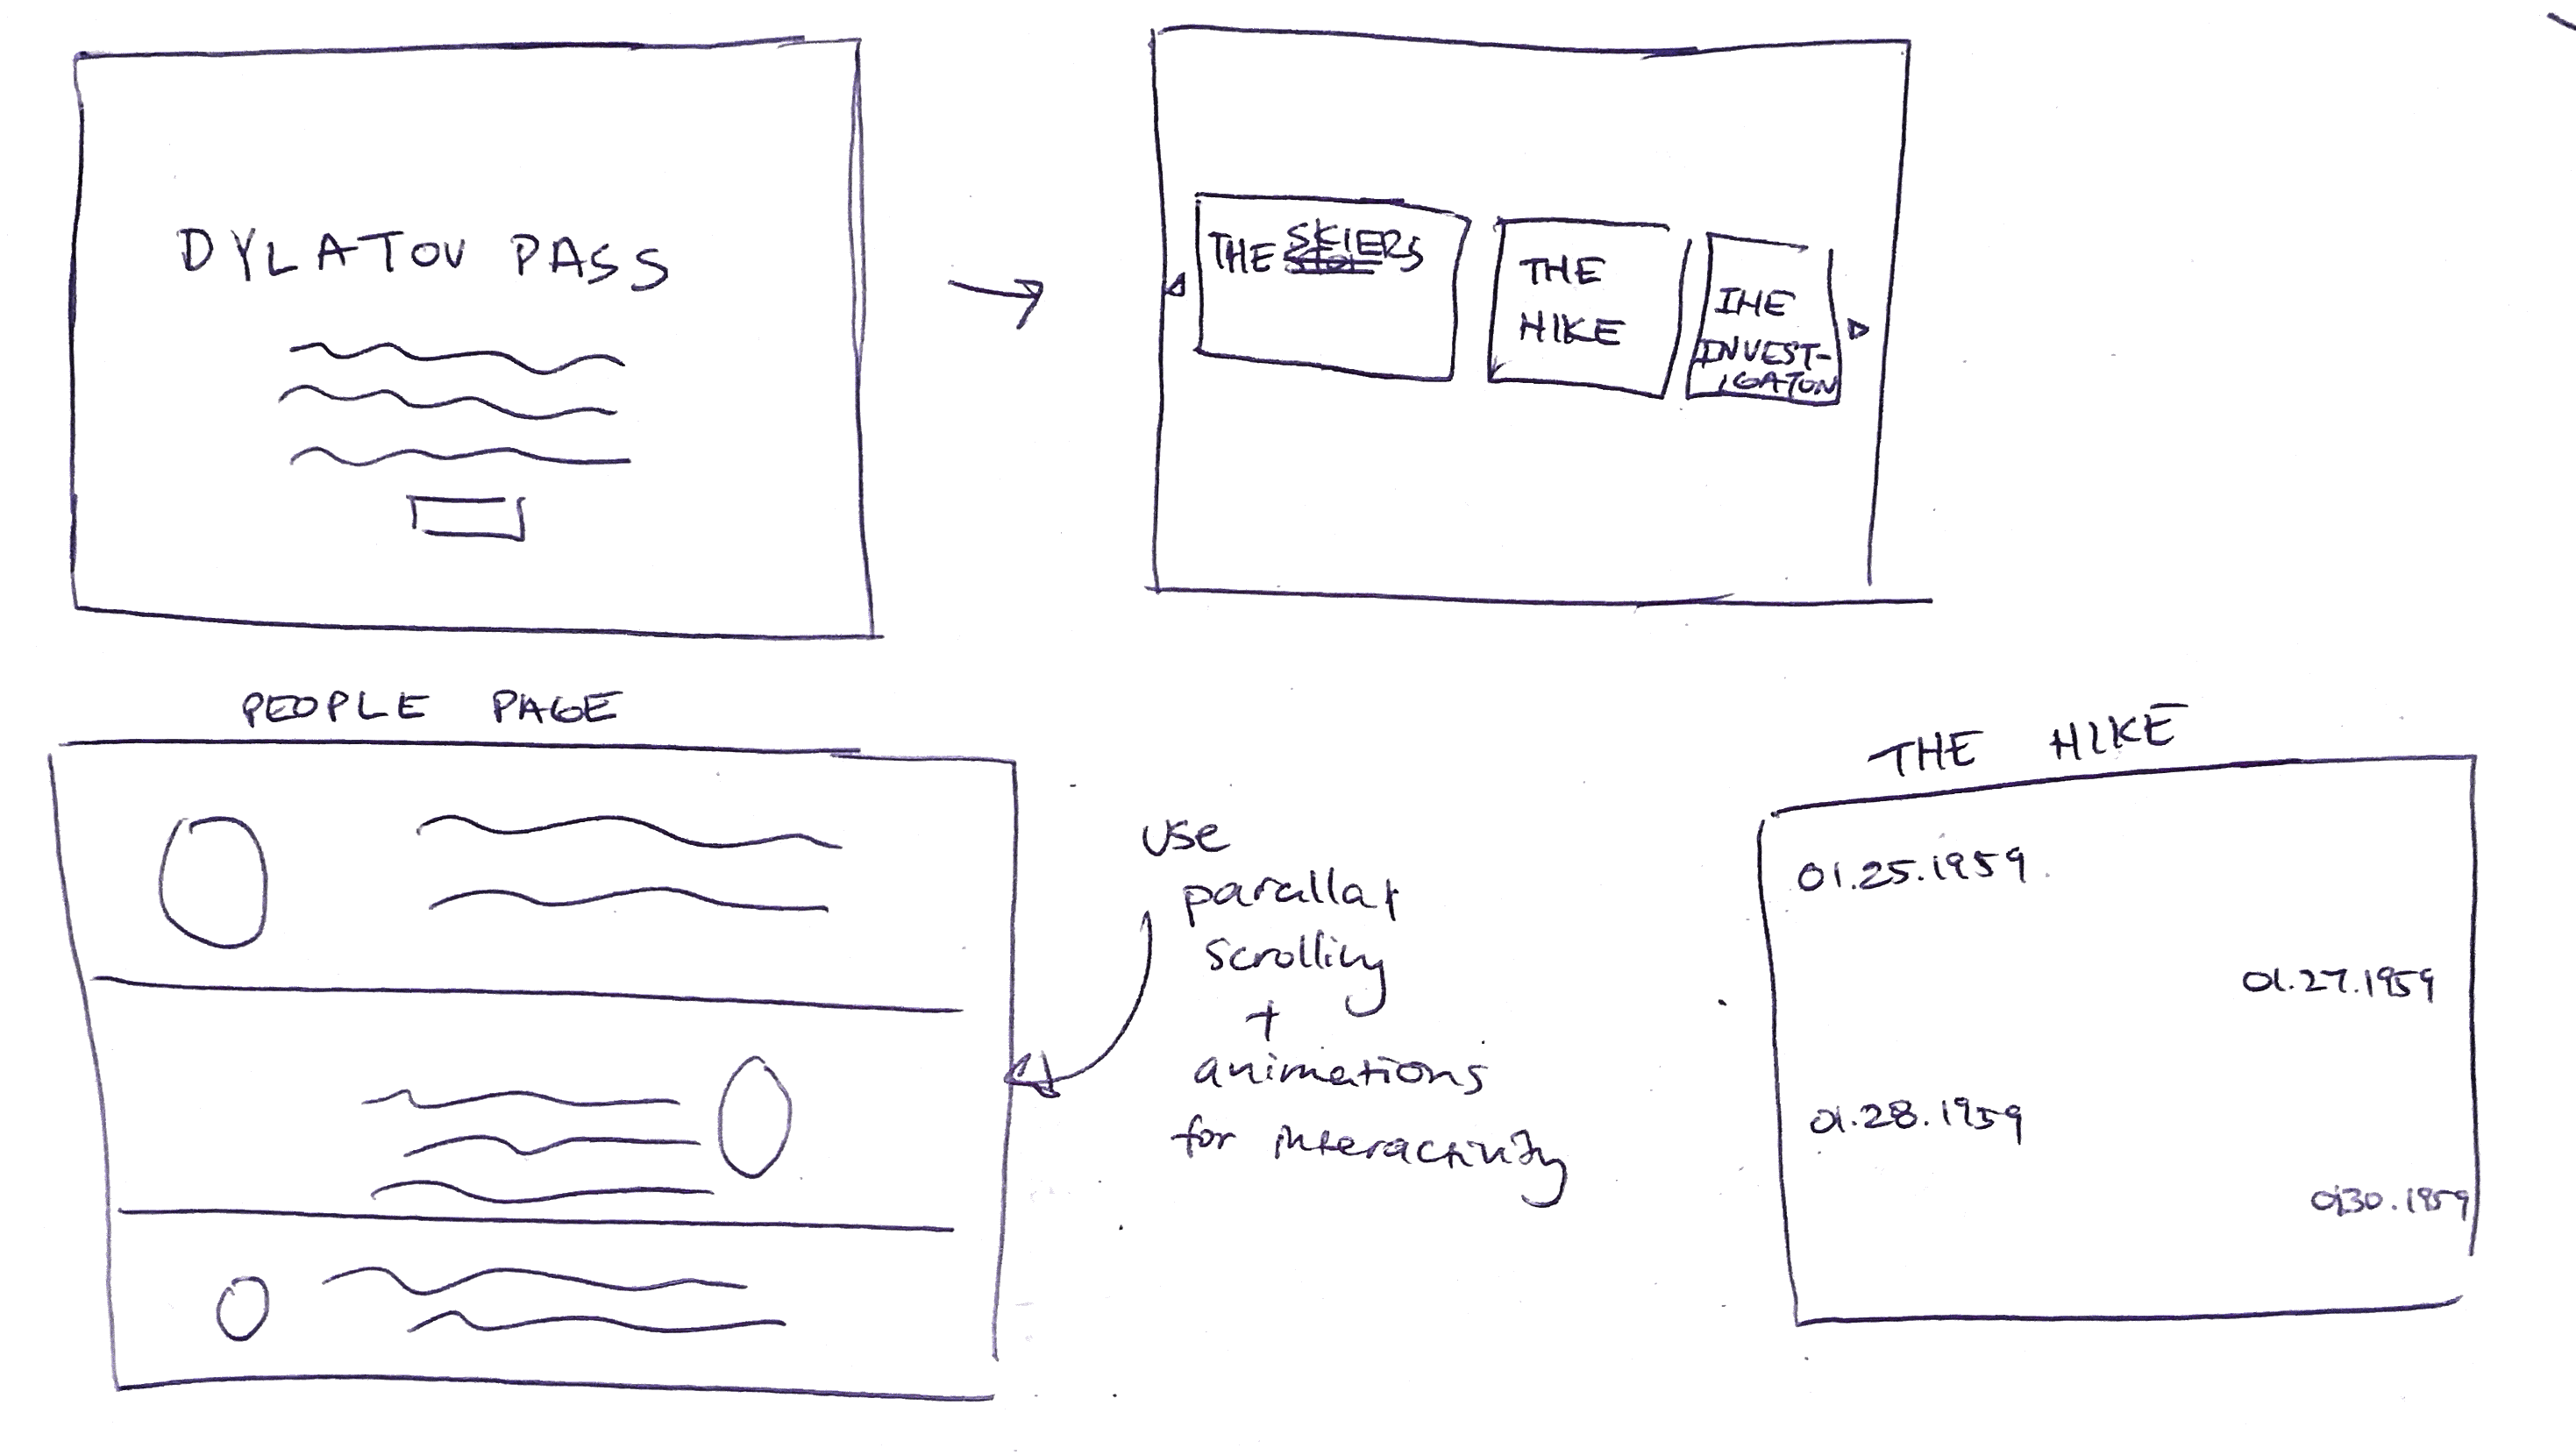 DYLATOV PASS
THE SKIERS
THE
HIKE
THE
INVEST-
IGATON
PEOPLE PAGE
use
parallax
scrolling
+
animations
for interactivity
THE HIKE
01.25.1959
01.27.1959
01.28.1959
0130.1959